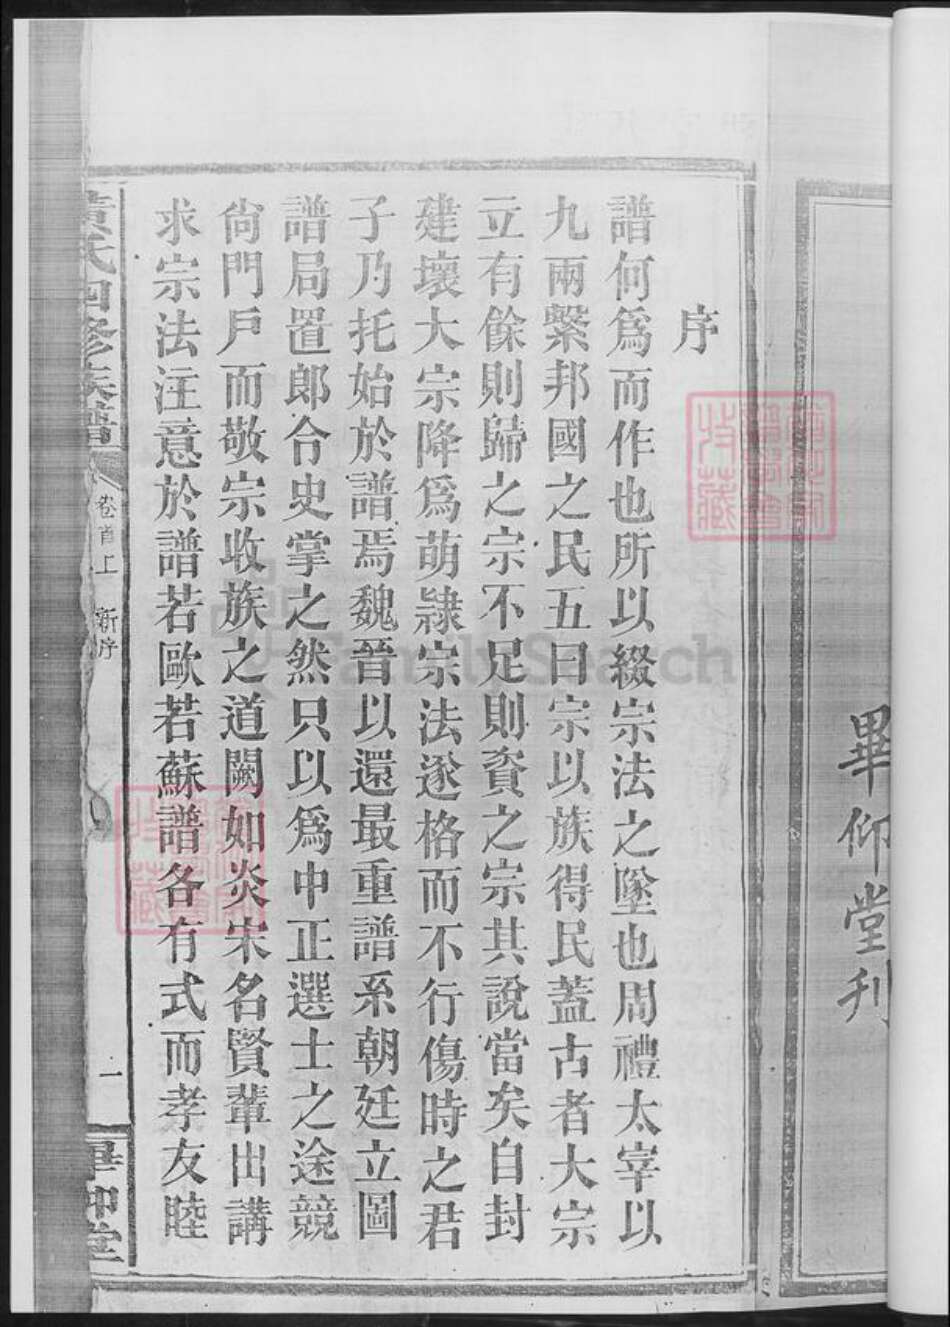 畢仰堂刊
序
譜何爲而作也所以綴宗法之墜也周禮太宰以
九兩繫邦國之民五曰宗以族得民蓋古者大宗
立有餘則歸之宗不足則資之宗其說當矣自封
建壞大宗降爲萌隸宗法遂格而不行傷時之君
子乃托始於譜焉魏晉以還最重譜系朝廷立圖
譜局置郎令史掌之然只以爲中正選士之途競
尙門戶而敬宗收族之道闕如炎宋名賢輩出講
求宗法注意於譜若歐若蘇譜各有式而孝友睦
黃氏四修族譜
卷首上 新序
一
畢仰堂
FamilySearch